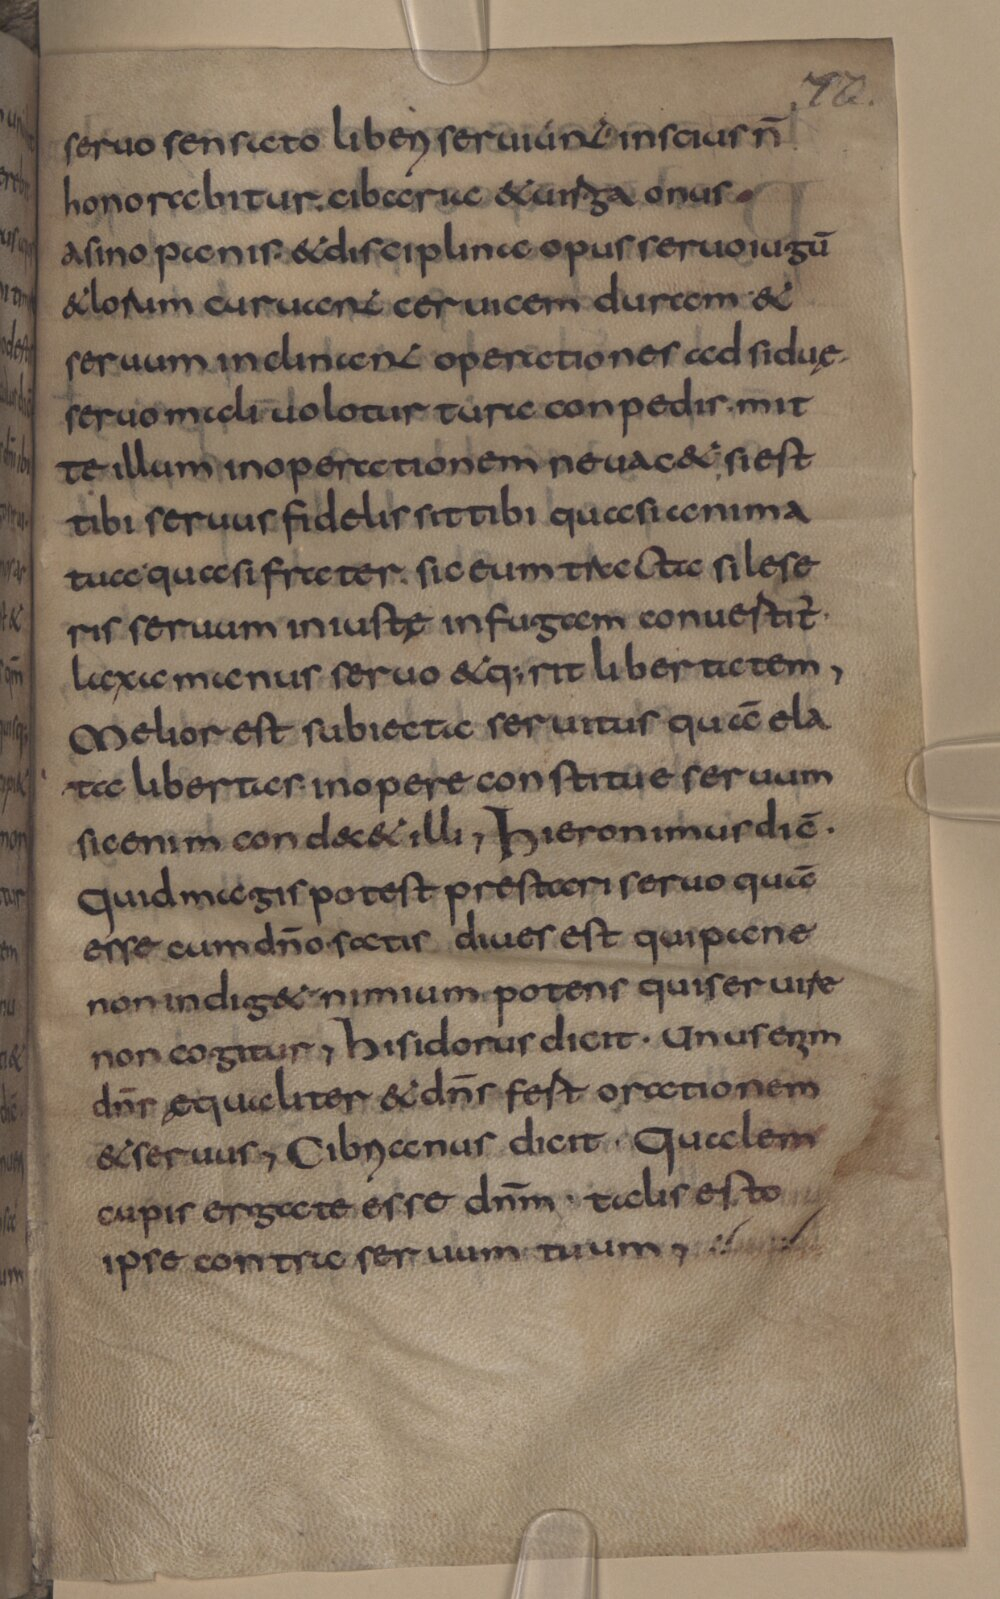 72.
seruo sensato liberi seruiunt inscius n̄
honorabitur. cibaria & uirga onus
asino panis. & disciplina opus seruo iugū
& lorum curuant ceruicem duram &
seruum inclinant operationes adsiduę.
seruo mali uolo tur tura conpedis. mit
te illum inoperationem neuac& si est
tibi seruus fidelis sit tibi quasi anima
tua quasi frater. sic eum tracta si lese
ris seruum iniustę infugam conuertit.
laxa manus seruo & q; rit libertatem,
Melior est subiecta seruitus quā ela
ta libertas. inopere constitue seruum
sic enim condec& illi, Hieronimus dic̄.
Quid magis potest prestari seruo quā
esse cum dño. satis diues est qui pane
non indig& nimium potens qui seruire
non cogitur, Hisidorus dicit. Unus enim
dn̄s ęqualiter & dn̄s fert orationem
& seruus, Cibrianus dicit. Qualem
cupis erga te esse dn̄m. talis esto
ipse contra seruum tuum,